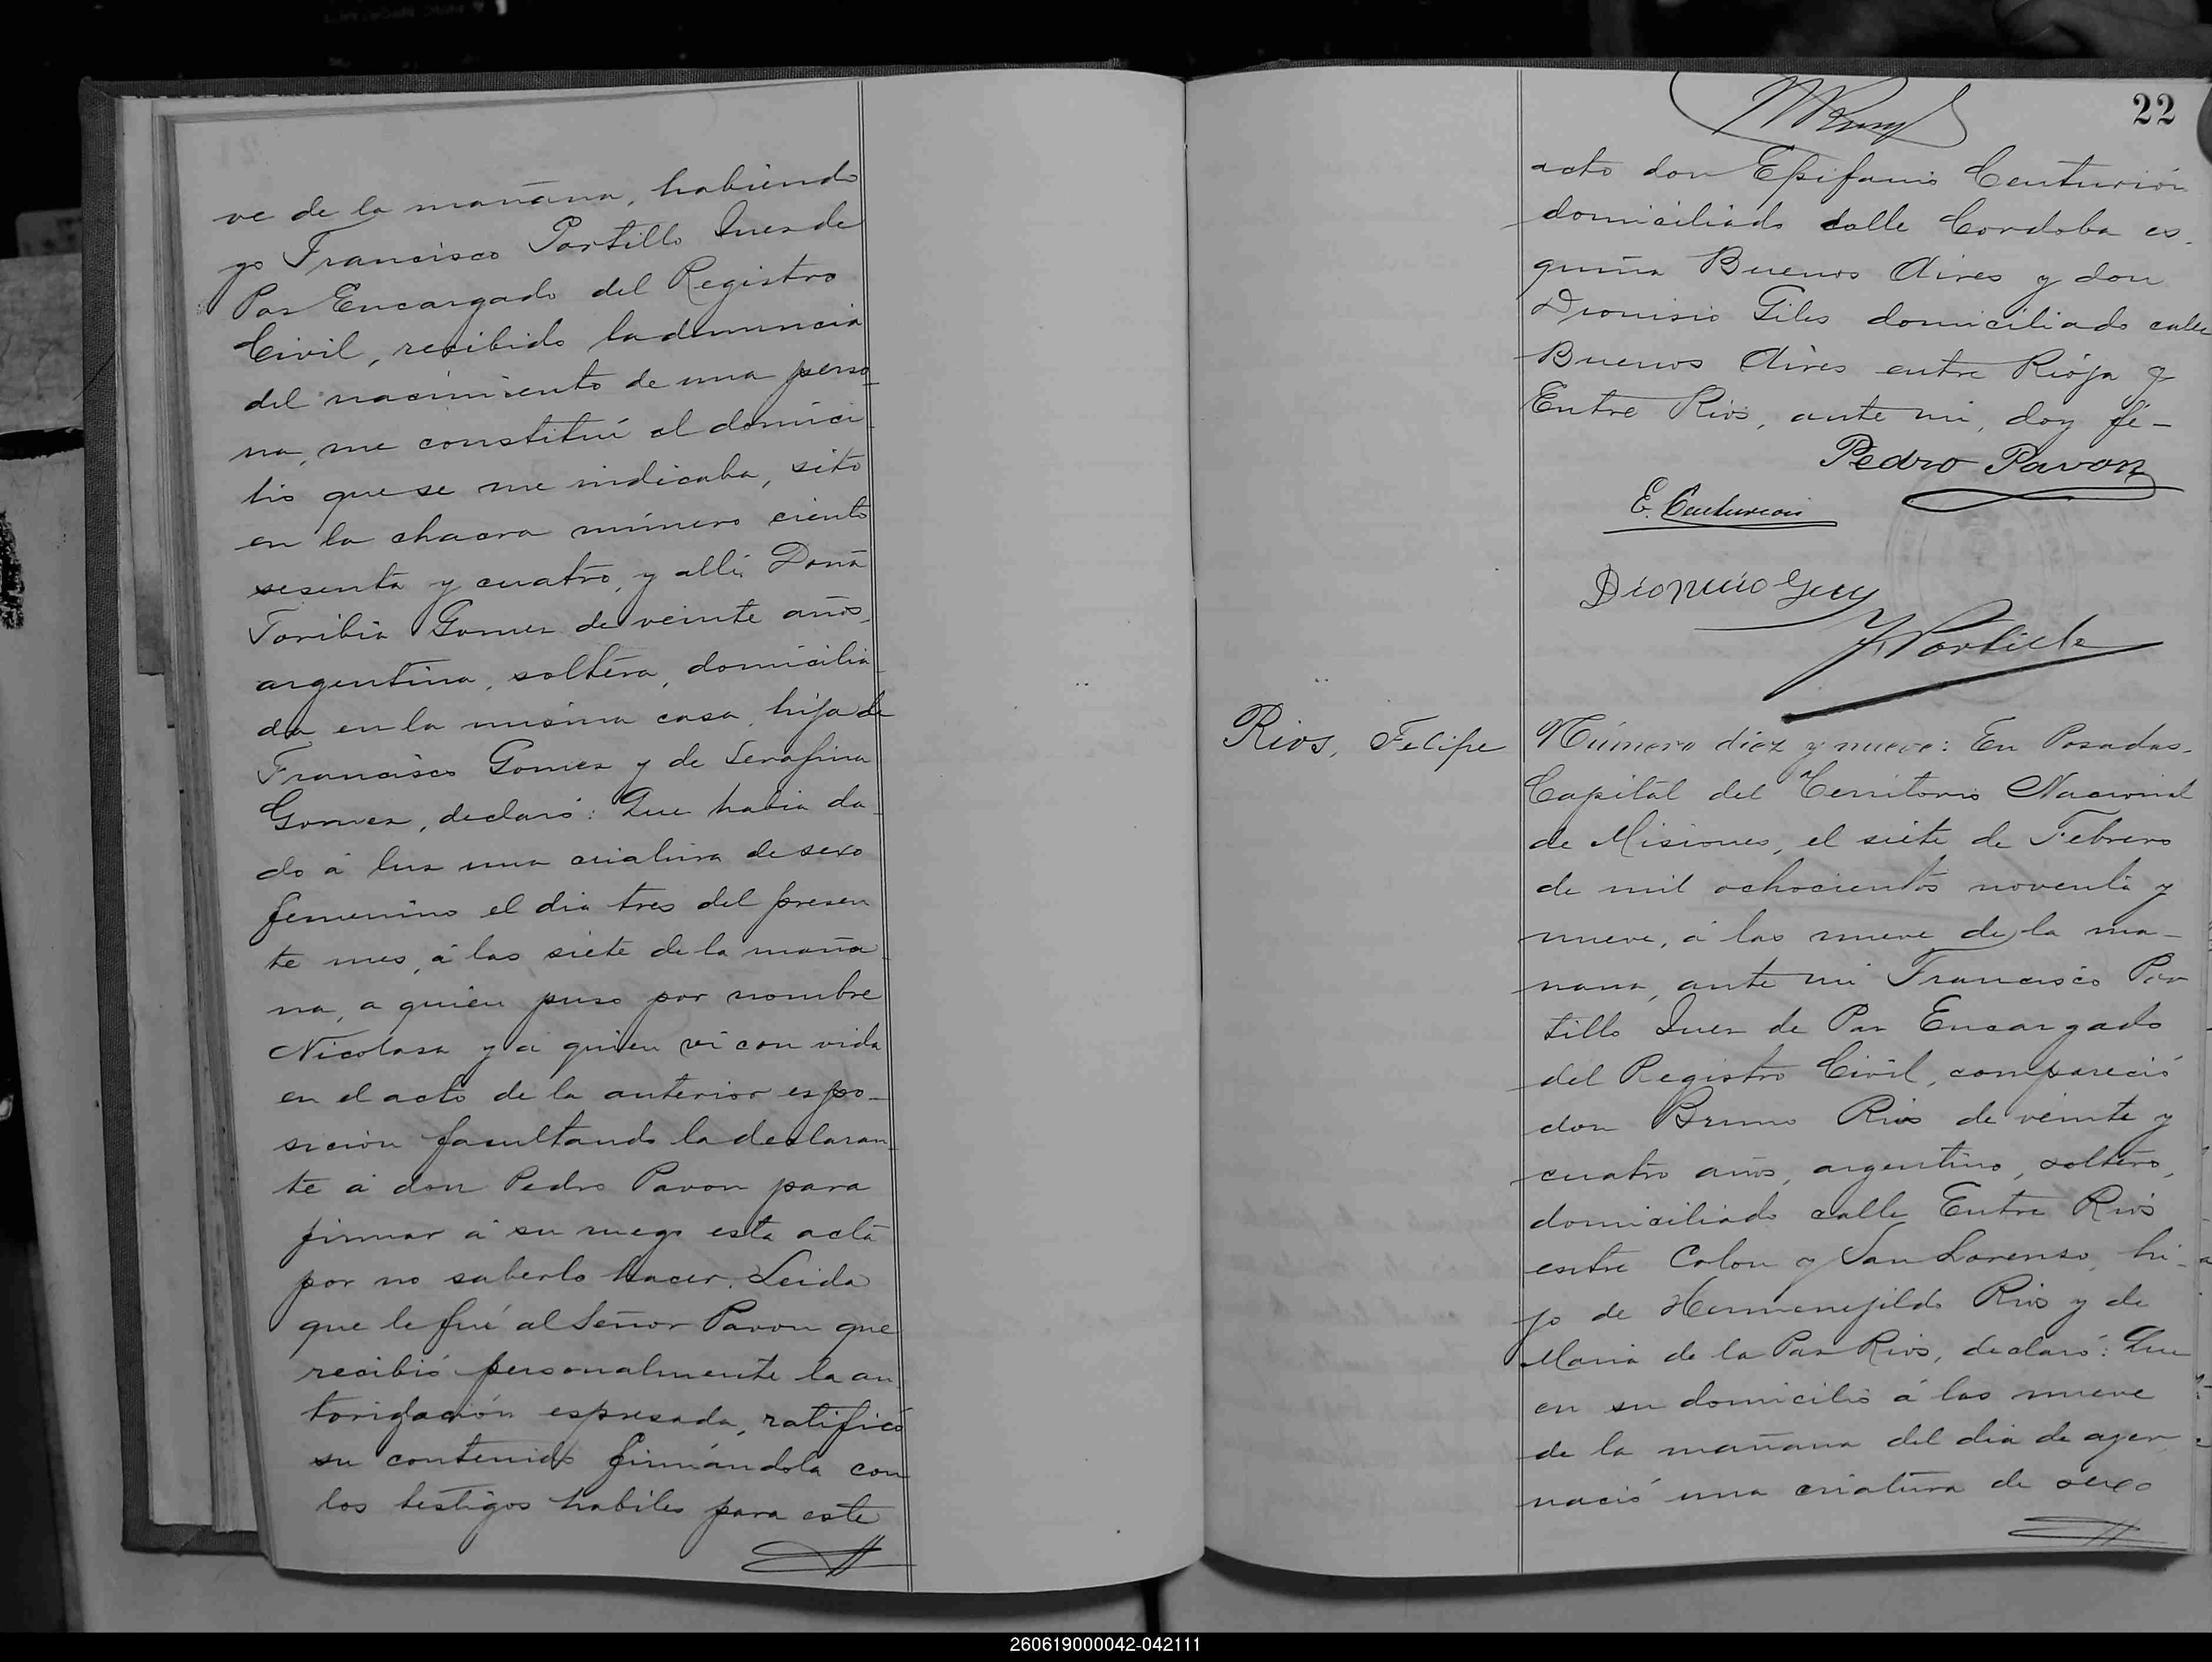 ve de la mañana, habiendo
yo Francisco Portillo Juez de
Paz Encargado del Registro
Civil, recibido la denuncia
del nacimiento de una perso
na, me constituí al domici
lio que se me indicaba, sito
en la chacra número ciento
sesenta y cuatro, y allí Doña
Toribia Gomez de veinte años,
argentina, soltera, domicilia
da en la misma casa, hija de
Francisco Gomez y de Serafina
Gomez, declaró: Que habia da
do á luz una criatura de sexo
femenino el dia tres del presen
te mes, á las siete de la maña
na, a quien puso por nombre
Nicolasa y á quien ví con vida
en el acto de la anterior espo-
sicion facultando la declaran
te á don Pedro Pavon para
firmar á su ruego esta acta
por no saberlo hacer. Leida
que le fué al Señor Pavon que
recibió personalmente la au
torizacion espresada, ratificó
su contenido firmándola con
los testigos habiles para este
22
acto don Epifanio Centurión
domiciliado calle Cordoba es-
quina Buenos Aires y don
Dionisio Giles domiciliado calle
Buenos Aires entre Rioja y
Entre Rios, ante mi, doy fé-
Pedro Pavon
E. Centurion
Dionisio
F. Portillo
Rios, Felipe
Número diez y nueve: En Posadas,
Capital del Territorio Nacional
de Misiones, el siete de Febrero
de mil ochocientos noventa y
nueve, á las nueve de la ma-
ñana, ante mi Francisco Por
tillo Juez de Paz Encargado
del Registro Civil, compareció
don Bruno Rios de veinte y
cuatro años, argentino, soltero,
domiciliado calle Entre Rios
entre Colon y San Lorenso, hi-
jo de Hermenejildo Rios y de
Maria de la Paz Rios, declaró: Que
en su domicilio á las nueve
de la mañana del dia de ayer
nació una criatura de sexo
260619000042-042111